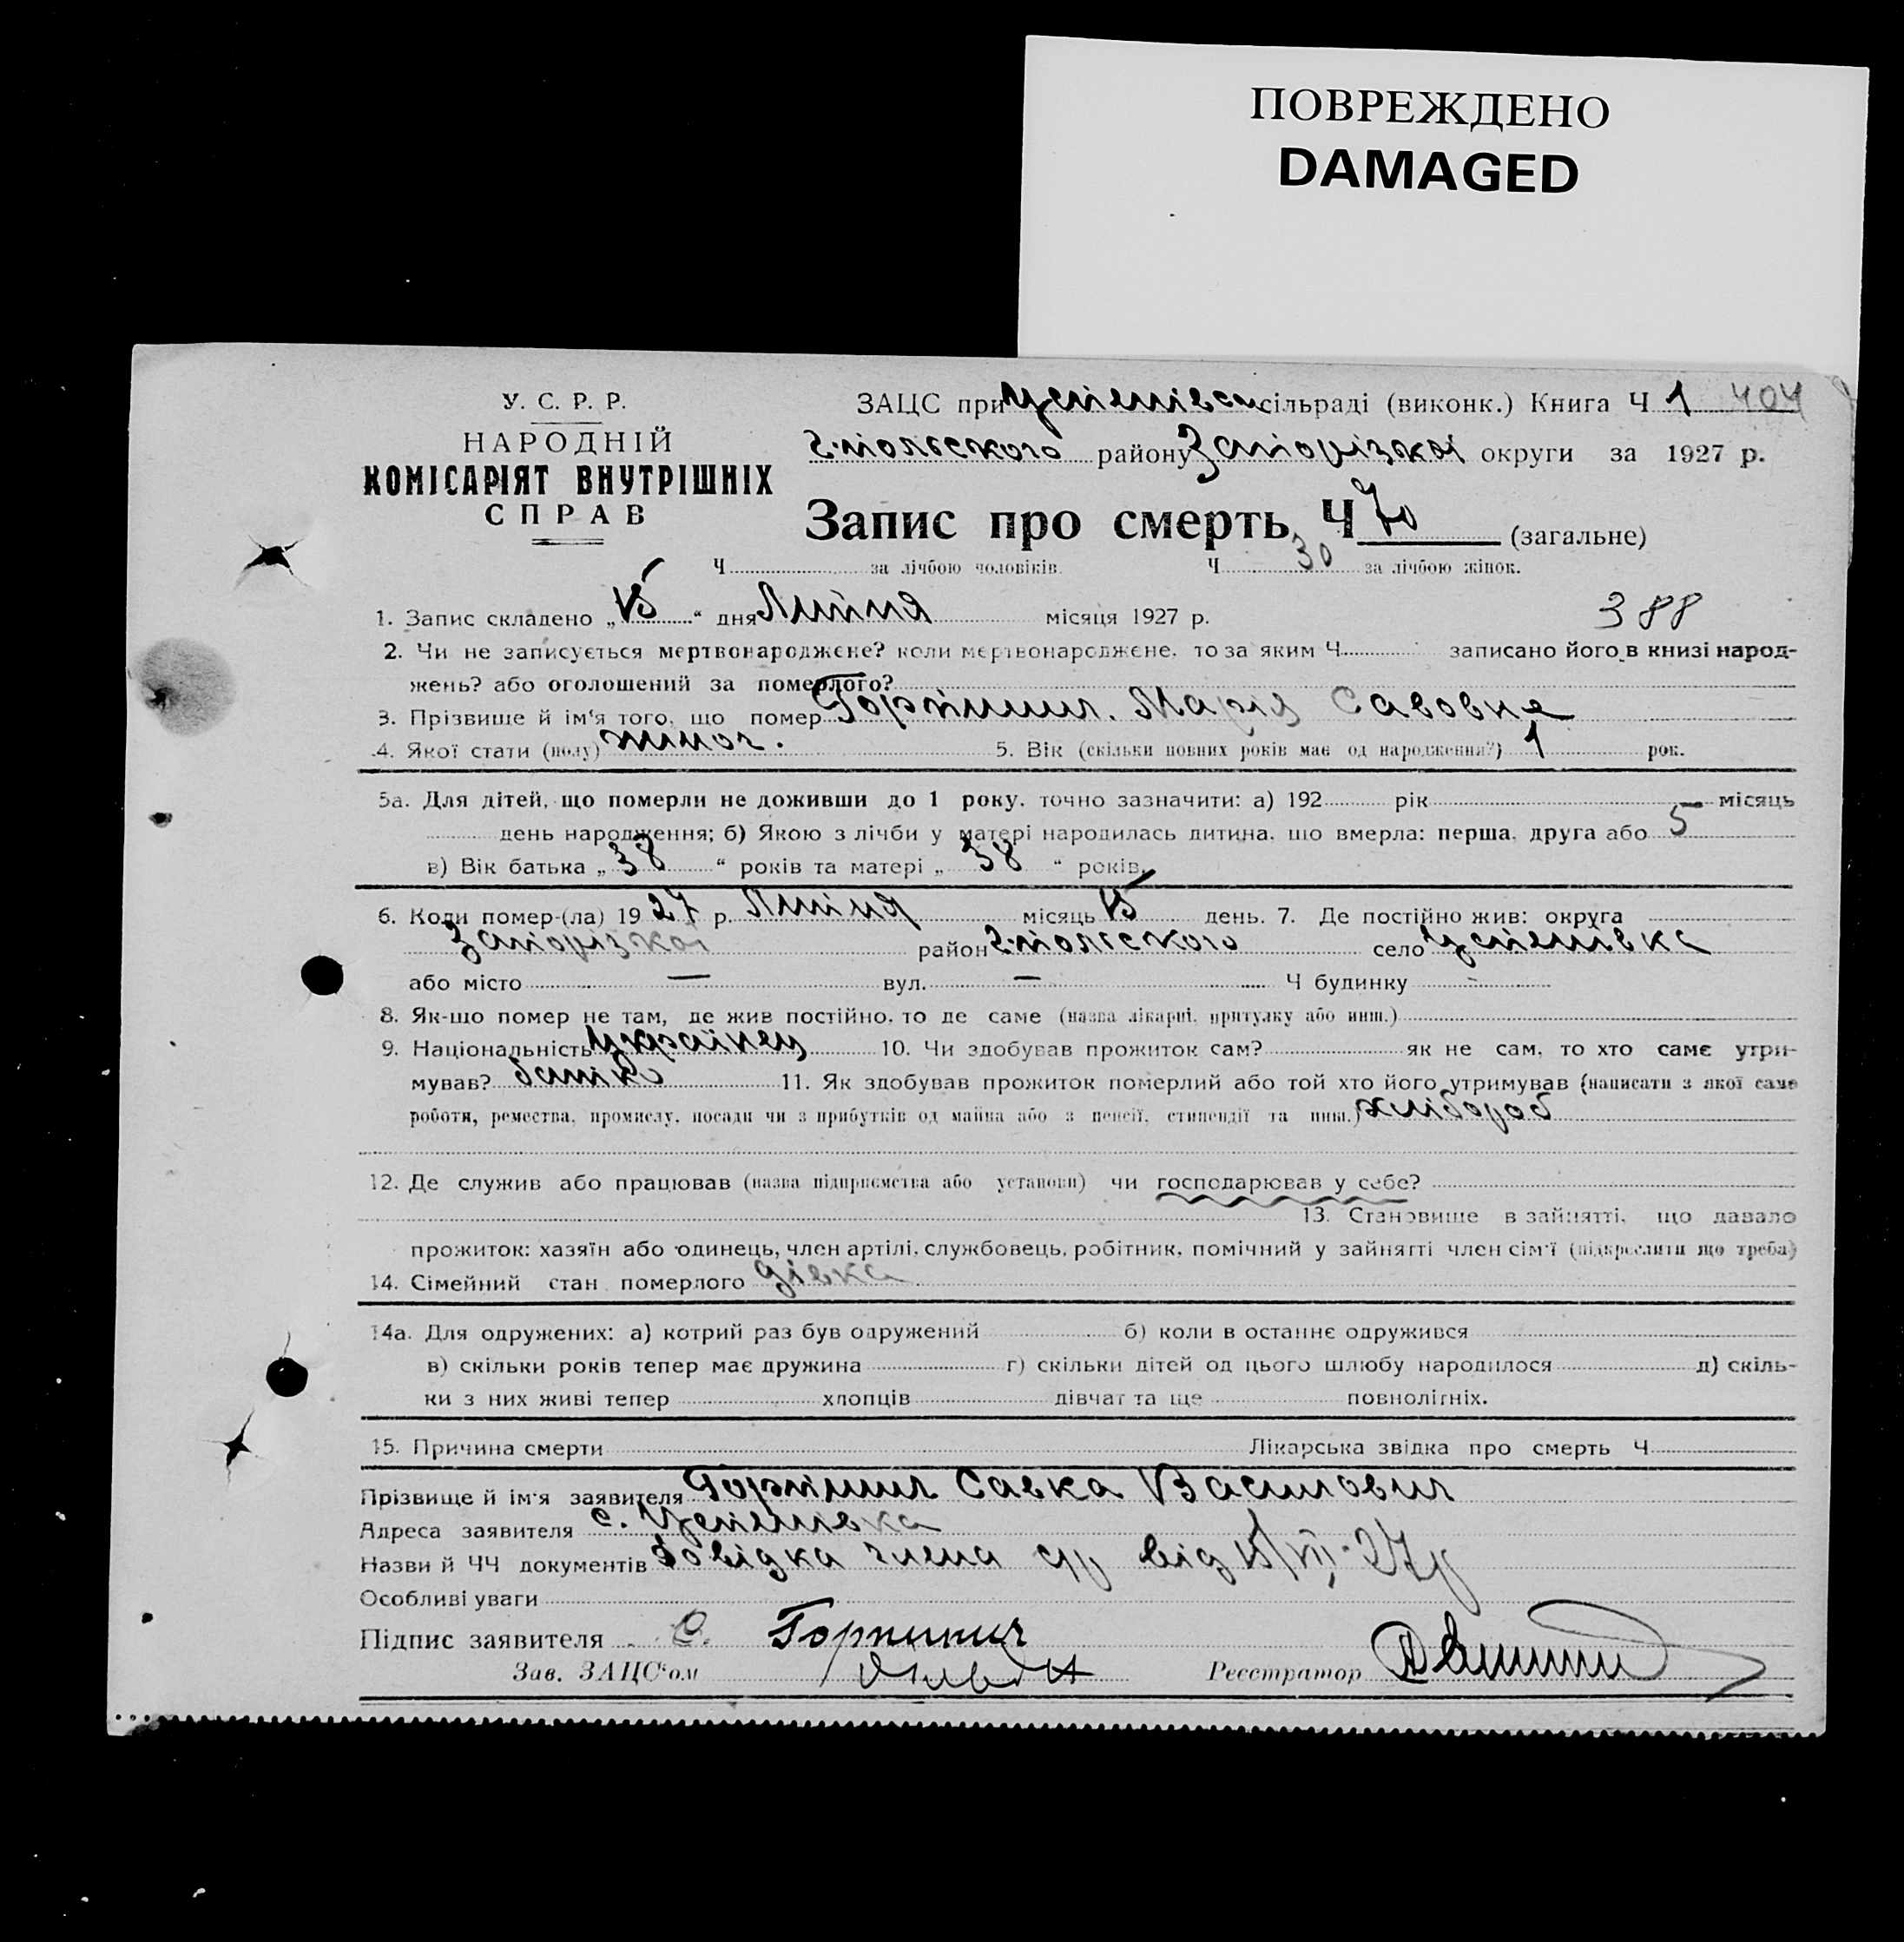 ПОВРЕЖДЕНО
DAMAGED
У. С. Р. Р.
НАРОДНІЙ
КОМІСАРІЯТ ВНУТРІШНІХ
СПРАВ
ЗАЦС при Успенівск сільраді (виконк.) Книга Ч 1 404
Г-польского району Запорізкої округи за 1927 р.
Запис про смерть Ч 70 (загальне)
Ч за лічбою чоловіків. Ч 30 за лічбою жінок.
1. Запис складено „15“ дня Липня місяця 1927 р. 388
2. Чи не записується мертвонароджене? коли мертвонароджене, то за яким Ч записано його в книзі народ-
жень? або оголошений за померлого?
3. Прізвище й ім'я того, що помер Горпинич. Марія Савовна
4. Якої стати (полу) жіноч. 5. Вік (скільки повних років має од народження?) 1 рок.
5а. Для дітей, що померли не доживши до 1 року, точно зазначити: а) 192 рік місяць
день народження; б) Якою з лічби у матері народилась дитина, що вмерла: перша, друга або 5
в) Вік батька „38“ років та матері „38“ років.
6. Коли помер-(ла) 1927 р. Липня місяць 15 день. 7. Де постійно жив: округа
Запорізкої район Г-польского село Успенівка
або місто — вул. — Ч будинку -
8. Як-що помер не там, де жив постійно, то де саме (назва лікарні, притулку або инш.)
9. Національність Українец 10. Чи здобував прожиток сам? як не сам, то хто саме утри-
мував? батько 11. Як здобував прожиток померлий або той хто його утримував (написати з якої саме
роботи, ремества, промислу, посади чи з прибутків од майна або з пенсії, стипендії та инш.) хлібороб
12. Де служив або працював (назва підприємства або установи) чи господарював у себе?
13. Становище в зайнятті, що давало
прожиток: хазяїн або одинець, член артілі, службовець, робітник, помічний у зайнятті член сім'ї (підкреслити що треба)
14. Сімейний стан померлого дівка
14а. Для одружених: а) котрий раз був одружений б) коли в останнє одружився
в) скільки років тепер має дружина г) скільки дітей од цього шлюбу народилося д) скіль-
ки з них живі тепер хлопців дівчат та ще повнолітніх.
15. Причина смерти Лікарська звідка про смерть Ч
Прізвище й ім'я заявителя Горпинич Савка Василович
Адреса заявителя с. Успенівка
Назви й ЧЧ документів Довідка члена с/р від 15/VII-27р
Особливі уваги
Підпис заявителя С. Горпинич
Зав. ЗАЦС'ом Реєстратор